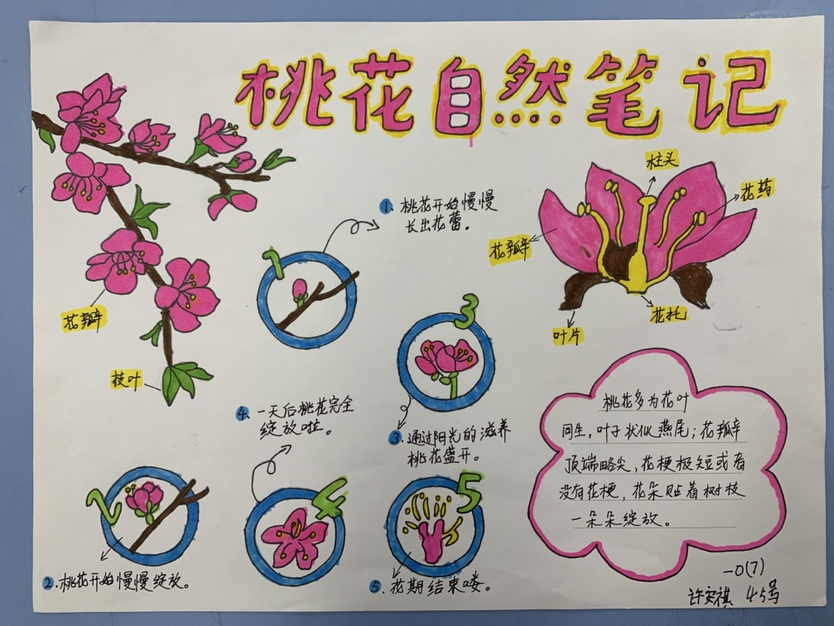 桃花自然笔记
柱头
花药
花瓣
叶片
花托
花瓣
枝叶
1
1. 桃花开始慢慢
长出花蕾。
2
2. 桃花开始慢慢绽放。
3
3. 通过阳光的滋养
桃花盛开。
4
4. 一天后桃花完全
绽放啦。
5
5. 花期结束喽。
桃花多为花叶
同生，叶子状似燕尾；花瓣
顶端略尖，花梗极短或者
没有花梗，花朵贴着树枝
一朵朵绽放。
一0(7)
许安祺 45号